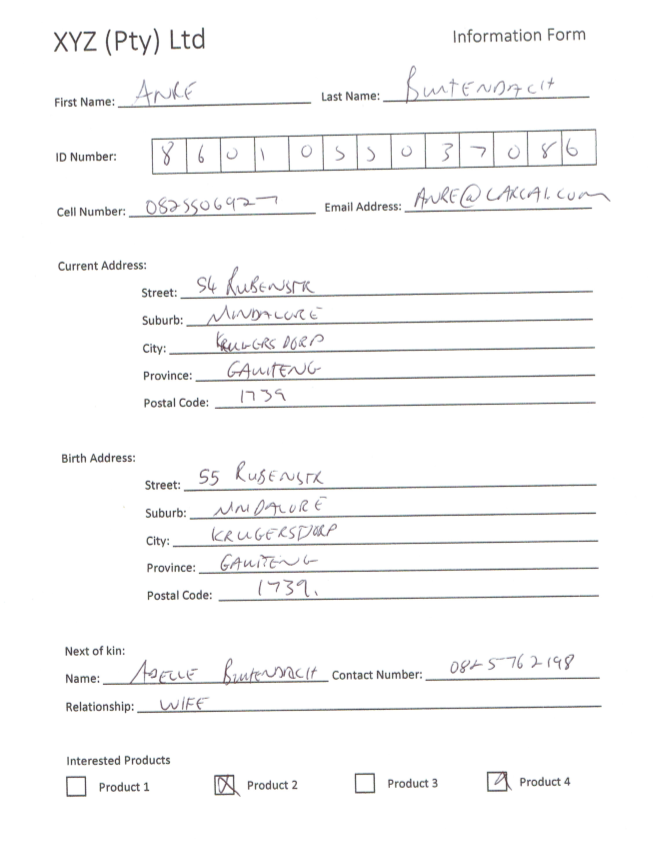 XYZ (Pty) Ltd
Information Form
First Name: ANRE Last Name: BUITENDACH
ID Number: 8 6 0 1 0 5 5 0 3 7 0 8 6
Cell Number: 0825506927 Email Address: ANRE@
Current Address:
Street: 54 RUBENSTR
Suburb: MINDALORE
City: KRUGERSDORP
Province: GAUTENG
Postal Code: 1739
Birth Address:
Street: 55 RUBENSTR
Suburb: MINDALORE
City: KRUGERSDORP
Province: GAUTENG
Postal Code: 1739.
Next of kin:
Name: ADELLE BUITENDACH Contact Number: 0825762198
Relationship: WIFE
Interested Products
Product 1 Product 2 Product 3 Product 4